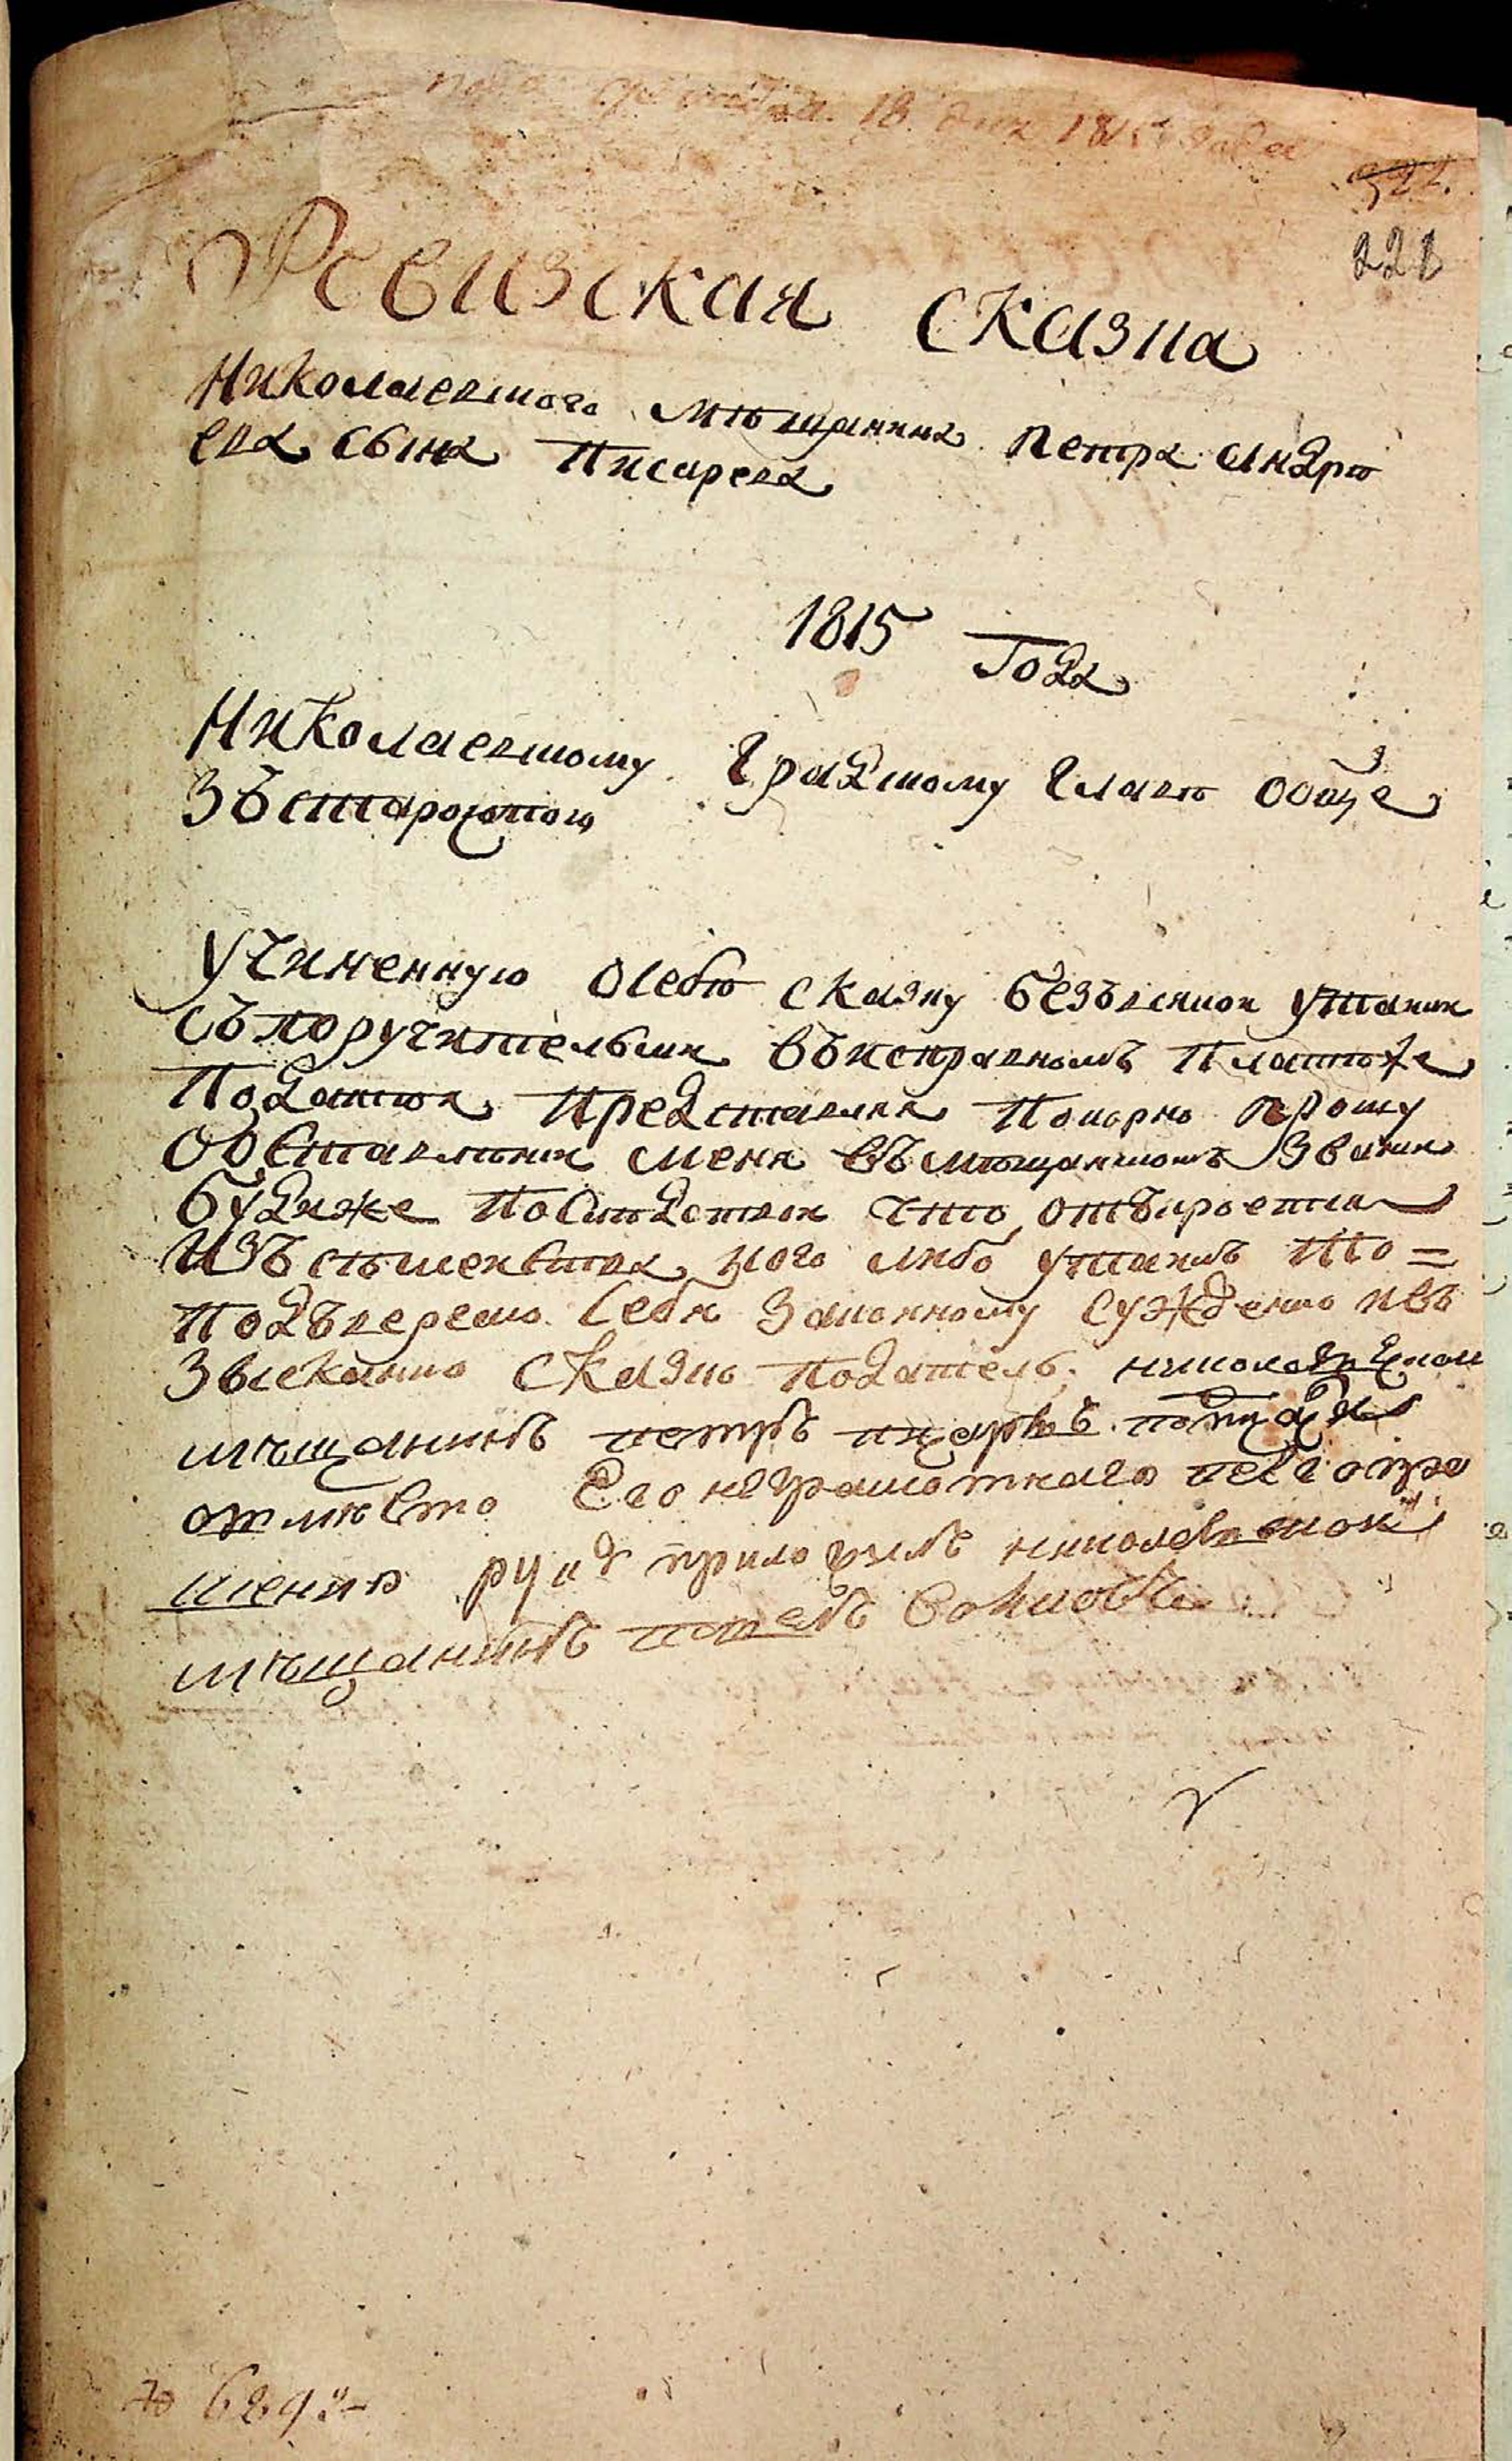 сентября 18. дня 1815 года
321.
221
Ревизская сказка
Николаевского мѣщанина Петра андрѣ
ева сына Писарева
1815 Года
Николаевскому градскому главѣ обще
Зъ старостою
Учиненную осебѣ сказку безъвсякои утаики
съпоручительми въисправномъ Платеже
Податеи Представляя Покорно прошу
Обоставлении меня въмещанскомъ Звании
будиже Посмерт что откроетца
Изъ семеиства кого либо утаилъ то =
подъвергаю Себя Законному Суждению ивъ
Зысканию Сказкъ податель: николаевскои
мѣщанинъ петръ писаревъ
вмѣсто Его неграмотнаго
шению руку приложилъ николаевскои
мѣщанинъ
№ 689